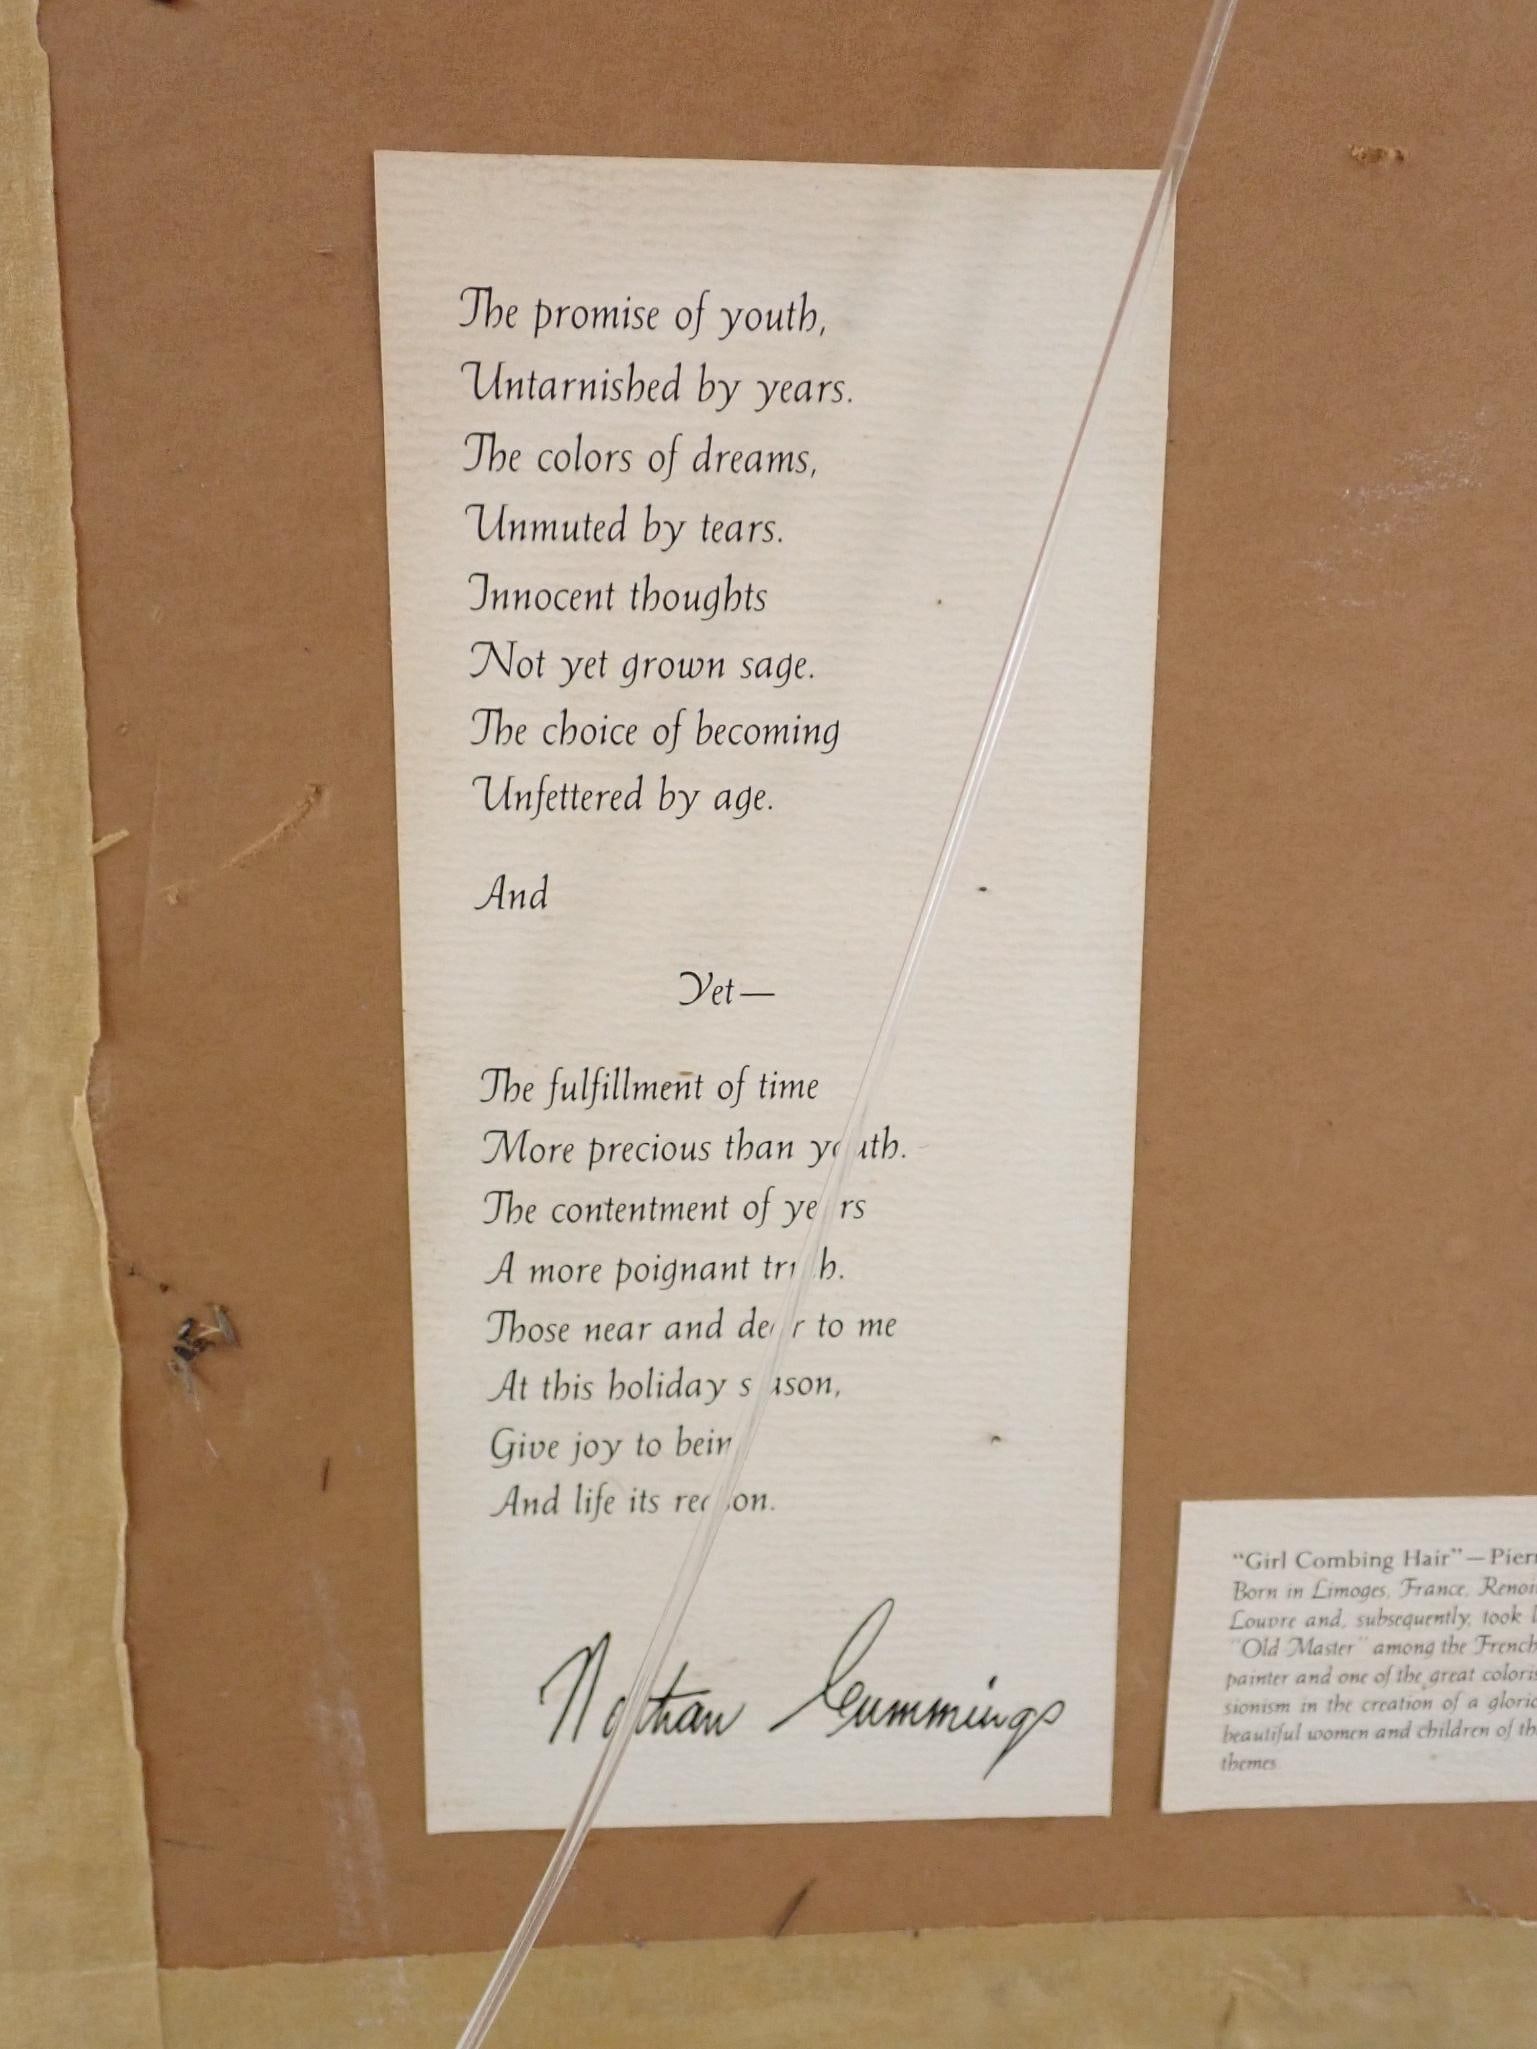 The promise of youth,
Untarnished by years.
The colors of dreams,
Unmuted by tears.
Innocent thoughts
Not yet grown sage.
The choice of becoming
Unfettered by age.
And
Yet—
The fulfillment of time
More precious than youth.
The contentment of years
A more poignant truth.
Those near and dear to me
At this holiday season,
Give joy to being
And life its reason.
Nathan Cummings
"Girl Combing Hair"—
Born in Limoges, France,
Louvre and, subsequently, took
"Old Master" among the French
painter and one of the great
sionism in the creation of a
beautiful women and children of
themes